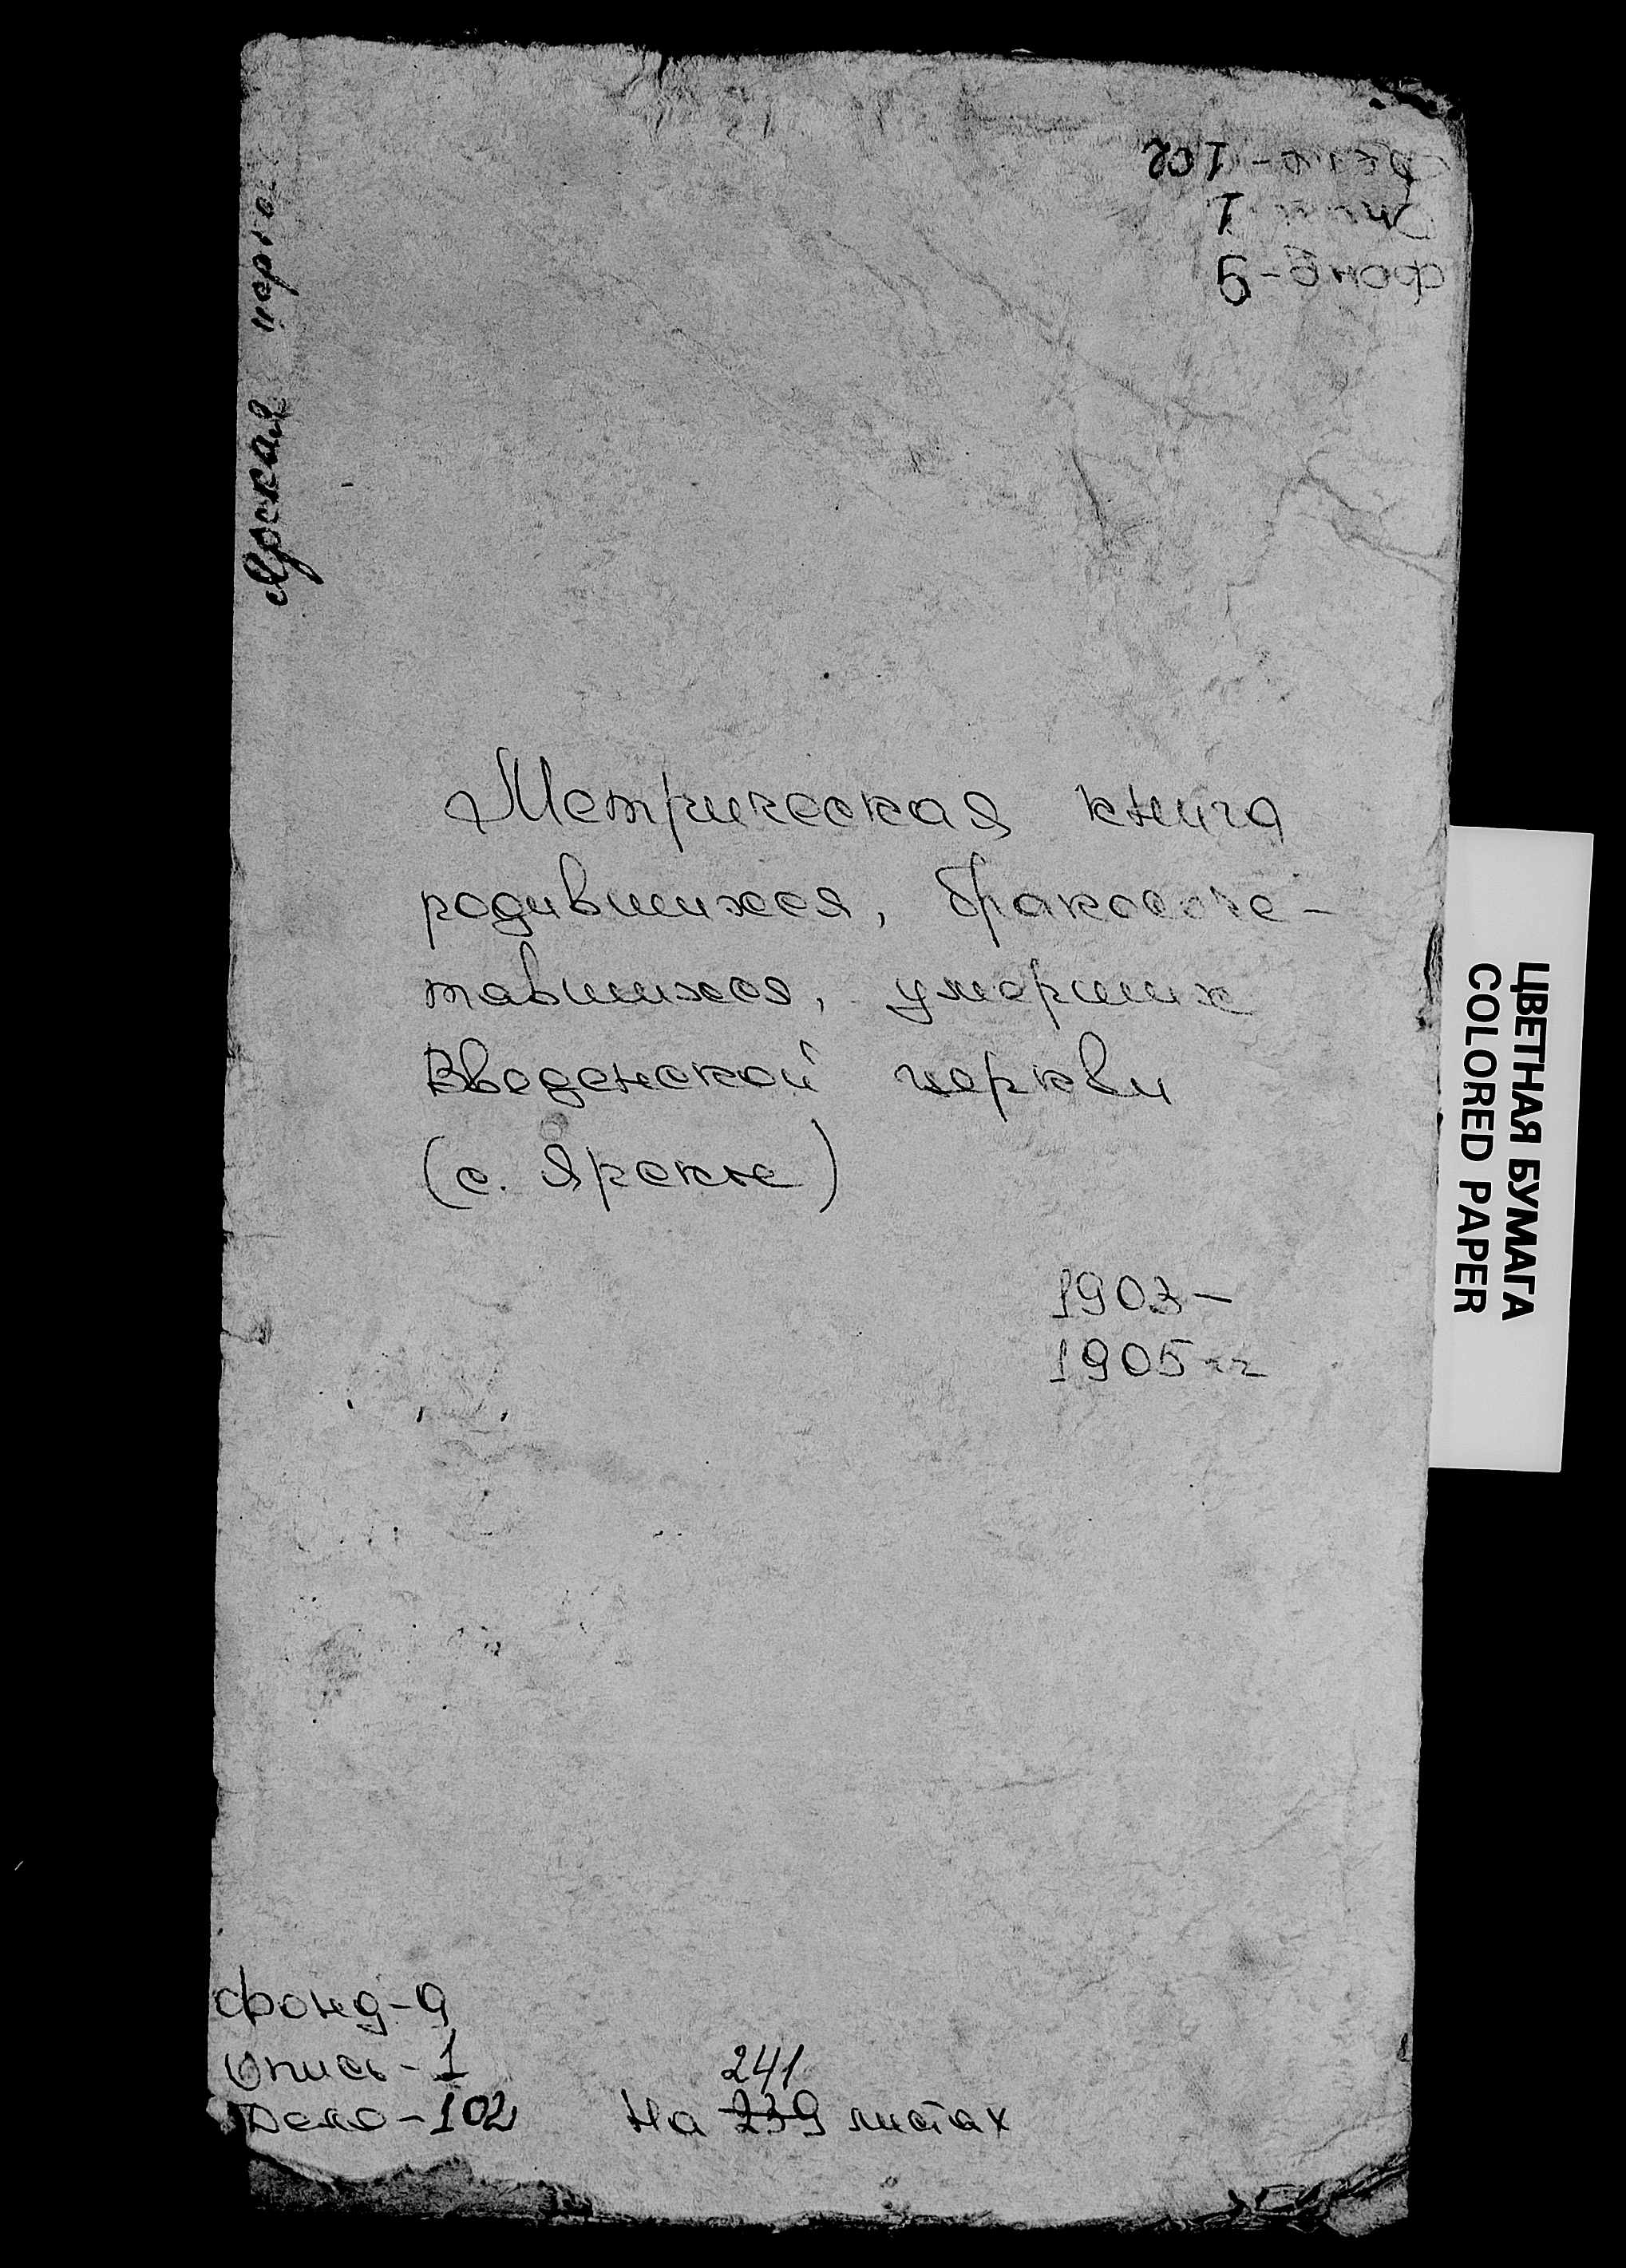 Дело-102
Опись 1
Фонд-9
Ярская
Метрическая книга
родившихся, бракосоче-
тавшихся, умерших
Введенской церкви
(с. Ярское)
1903-
1905 гг
ЦВЕТНАЯ БУМАГА
COLORED PAPER
Фонд-9
Опись-1
Дело-102
241
На 239 листах